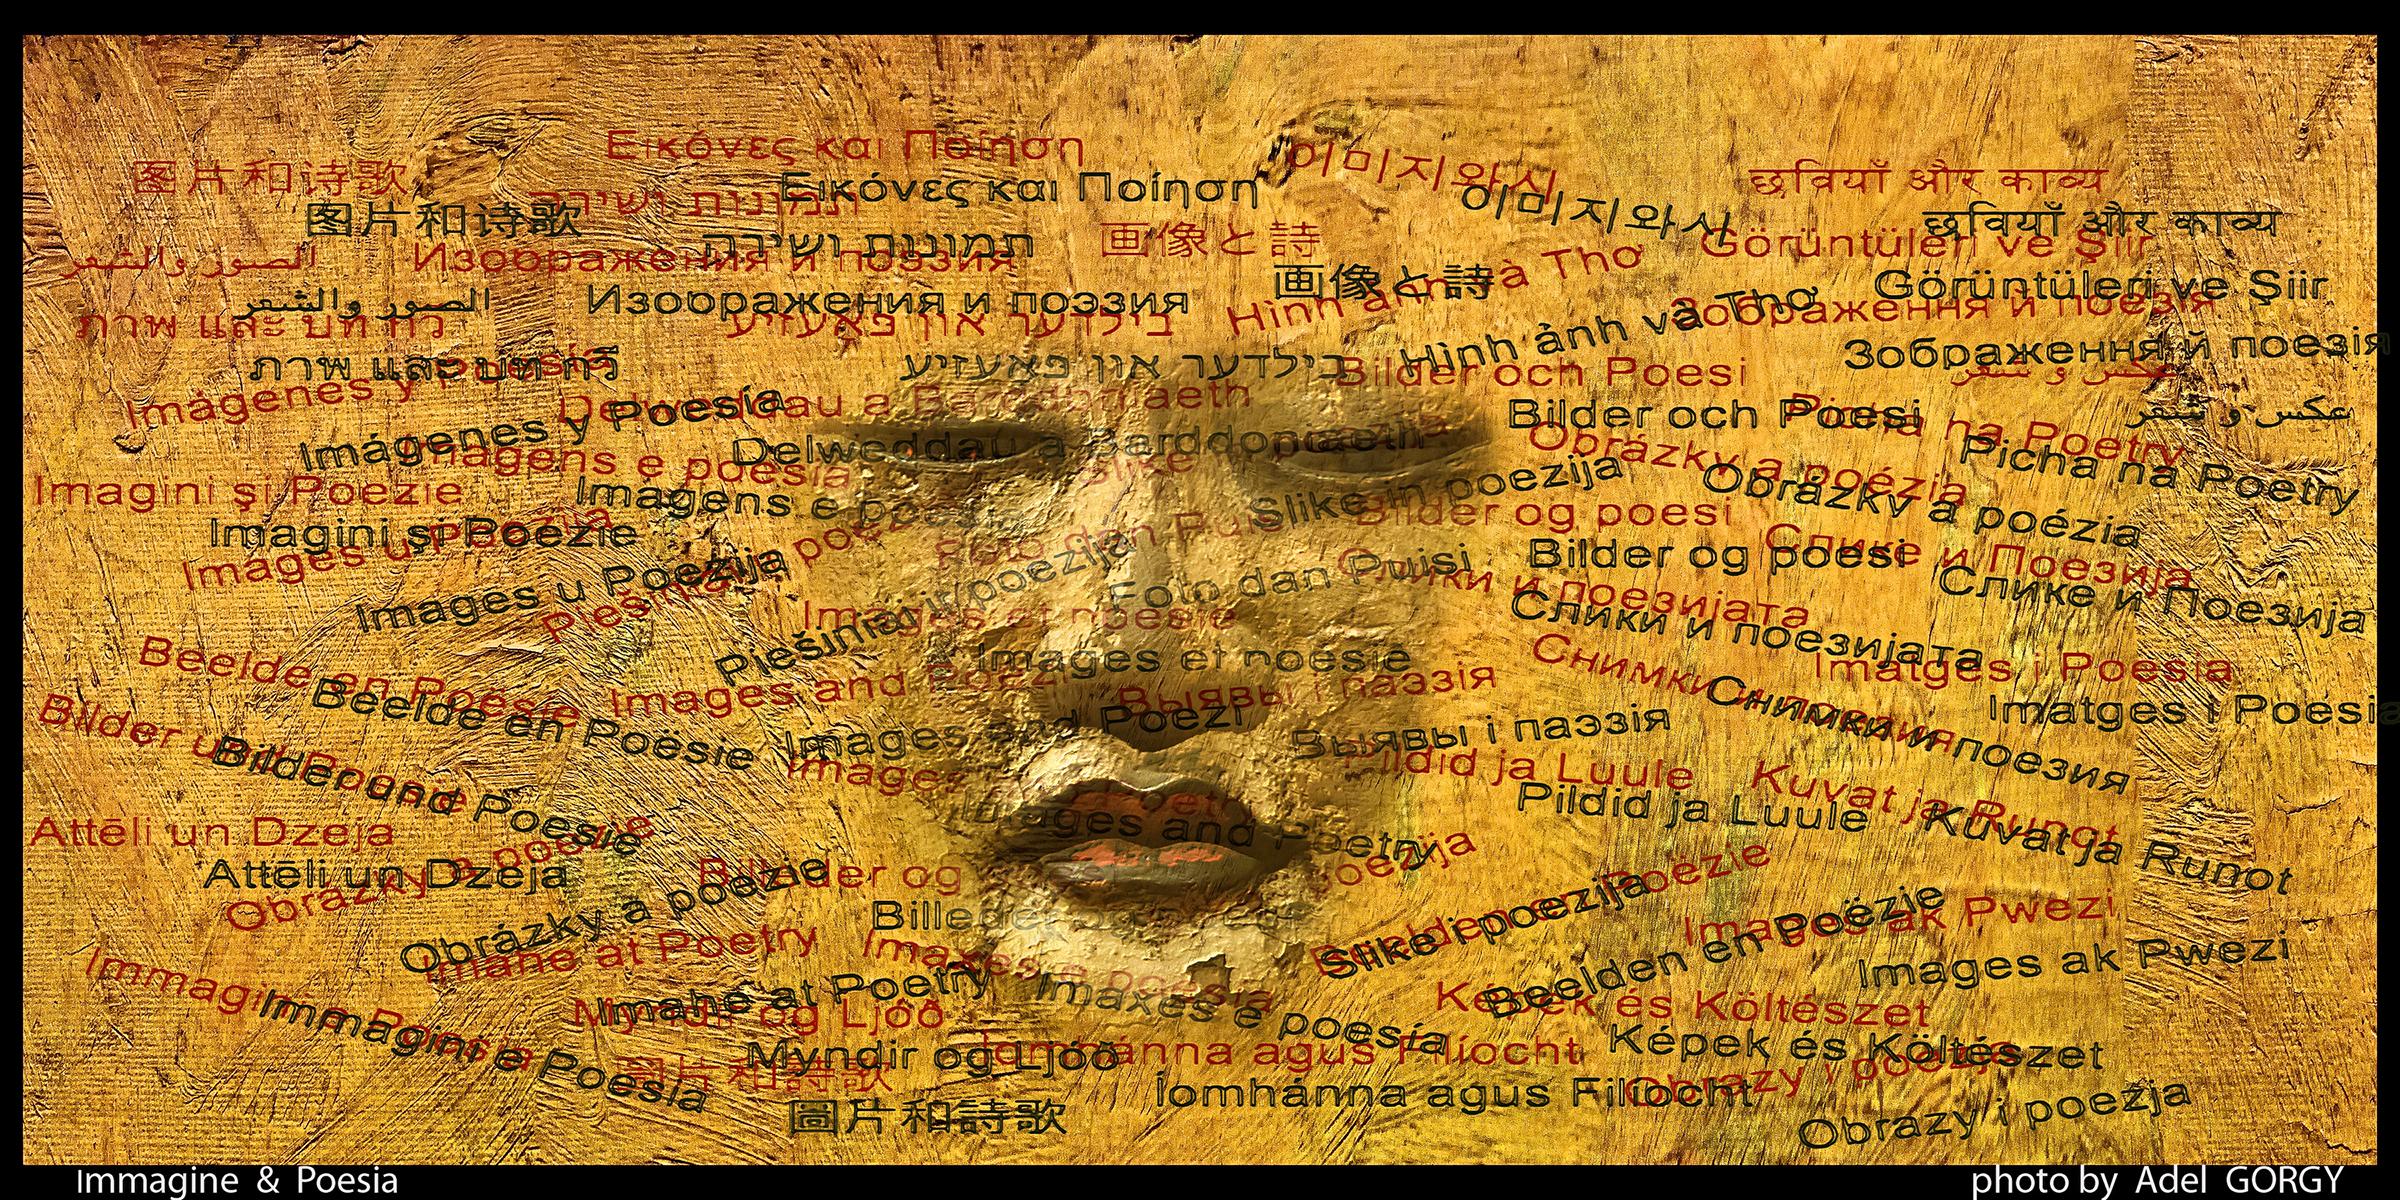 Εικόνες και Ποίηση
이미지와시
图片和诗歌
छवियाँ और काव्य
Εικόνες και Ποίηση
תמונות ושירה
이미지와시
图片和诗歌
छवियाँ और काव्य
תמונות ושירה
画像と詩
Görüntüleri ve Şiir
الصور والشعر
Изображения и поэзия
画像と詩
Hình ảnh và Thơ
Görüntüleri ve Şiir
الصور والشعر
Изображения и поэзия
Зображення й поезія
ภาพ และ บท กวี
בילדער און פּאָעזיע
Hình ảnh và Thơ
Зображення й поезія
ภาพ และ บท กวี
בילדער און פּאָעזיע
Bilder och Poesi
عکس و شعر
Imágenes y Poesía
Delweddau a Barddoniaeth
Bilder och Poesi
عکس و شعر
Imágenes y Poesía
Delweddau a Barddoniaeth
Picha na Poetry
Imagens e poesia
Slike
Obrázky a poézia
Picha na Poetry
Imagini şi Poezie
Imagens e poesia
Slike in poezija
Obrázky a poézia
Imagini şi Poezie
Bilder og poesi
Images u Poezija
Foto dan Puisi
Bilder og poesi
Слике и Поезија
Images u Poezija
Foto dan Puisi
Слики и поезијата
Слике и Поезија
Piešiniai ir poezija
Images et poésie
Слики и поезијата
Beelde en Poësie
Images et poésie
Снимки и поезия
Imatges i Poesia
Beelde en Poësie
Images and Poezi
Выявы і паэзія
Снимки и поезия
Imatges i Poesia
Bilder und Poesie
Images and Poezi
Выявы і паэзія
Bilder und Poesie
Images
Pildid ja Luule
Kuvat ja Runot
Attēli un Dzeja
Images and Poetry
Pildid ja Luule
Kuvat ja Runot
Attēli un Dzeja
Obrázky a poezie
Billeder og
poezija
Obrázky a poezie
Billeder og
Slike i poezija
Beelden en Poëzie
Images ak Pwezi
Imahe at Poetry
Imaxes e poesía
Beelden en Poëzie
Images ak Pwezi
Immagini e Poesia
Imahe at Poetry
Imaxes e poesía
Képek és Költészet
Immagini e Poesia
Myndir og Ljóð
Íomhánna agus Filíocht
Képek és Költészet
圖片和詩歌
Myndir og Ljóð
Íomhánna agus Filíocht
Obrazy i poezja
圖片和詩歌
Obrazy i poezja
Immagine & Poesia
photo by Adel GORGY